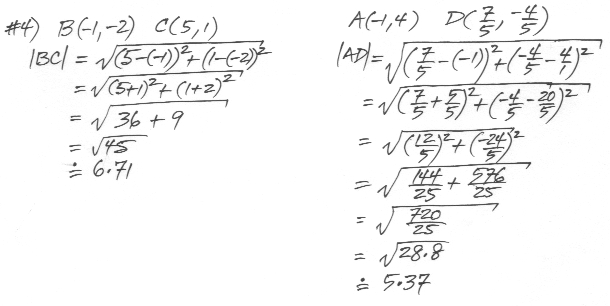 #4) B(-1,-2) C(5,1)
|BC| = √(5-(-1))²+(1-(-2))²
= √(5+1)²+(1+2)²
= √36+9
= √45
≐ 6.71
A(-1,4) D(7/5, -4/5)
|AD| = √(7/5-(-1))²+(-4/5-4/1)²
= √(7/5+5/5)²+(-4/5-20/5)²
= √(12/5)²+(-24/5)²
= √144/25+576/25
= √720/25
= √28.8
≐ 5.37